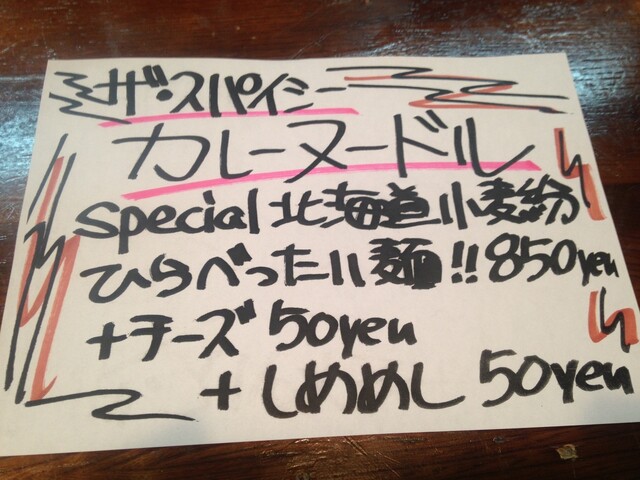 ザ・スパイシー
カレーヌードル
special 北海道小麦粉
ひらべったい麺!! 850yen
+チーズ 50yen
+しめめし 50yen